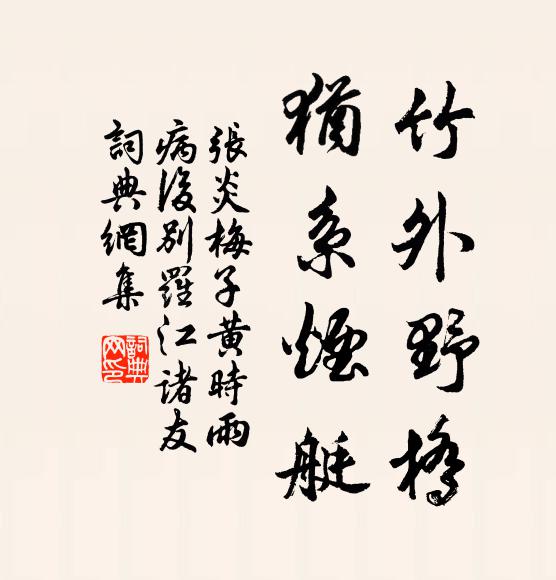 竹外野橋
猶系煙艇
張炎梅子黄時雨
病後別羅江諸友
詞典網集
詞典
网印